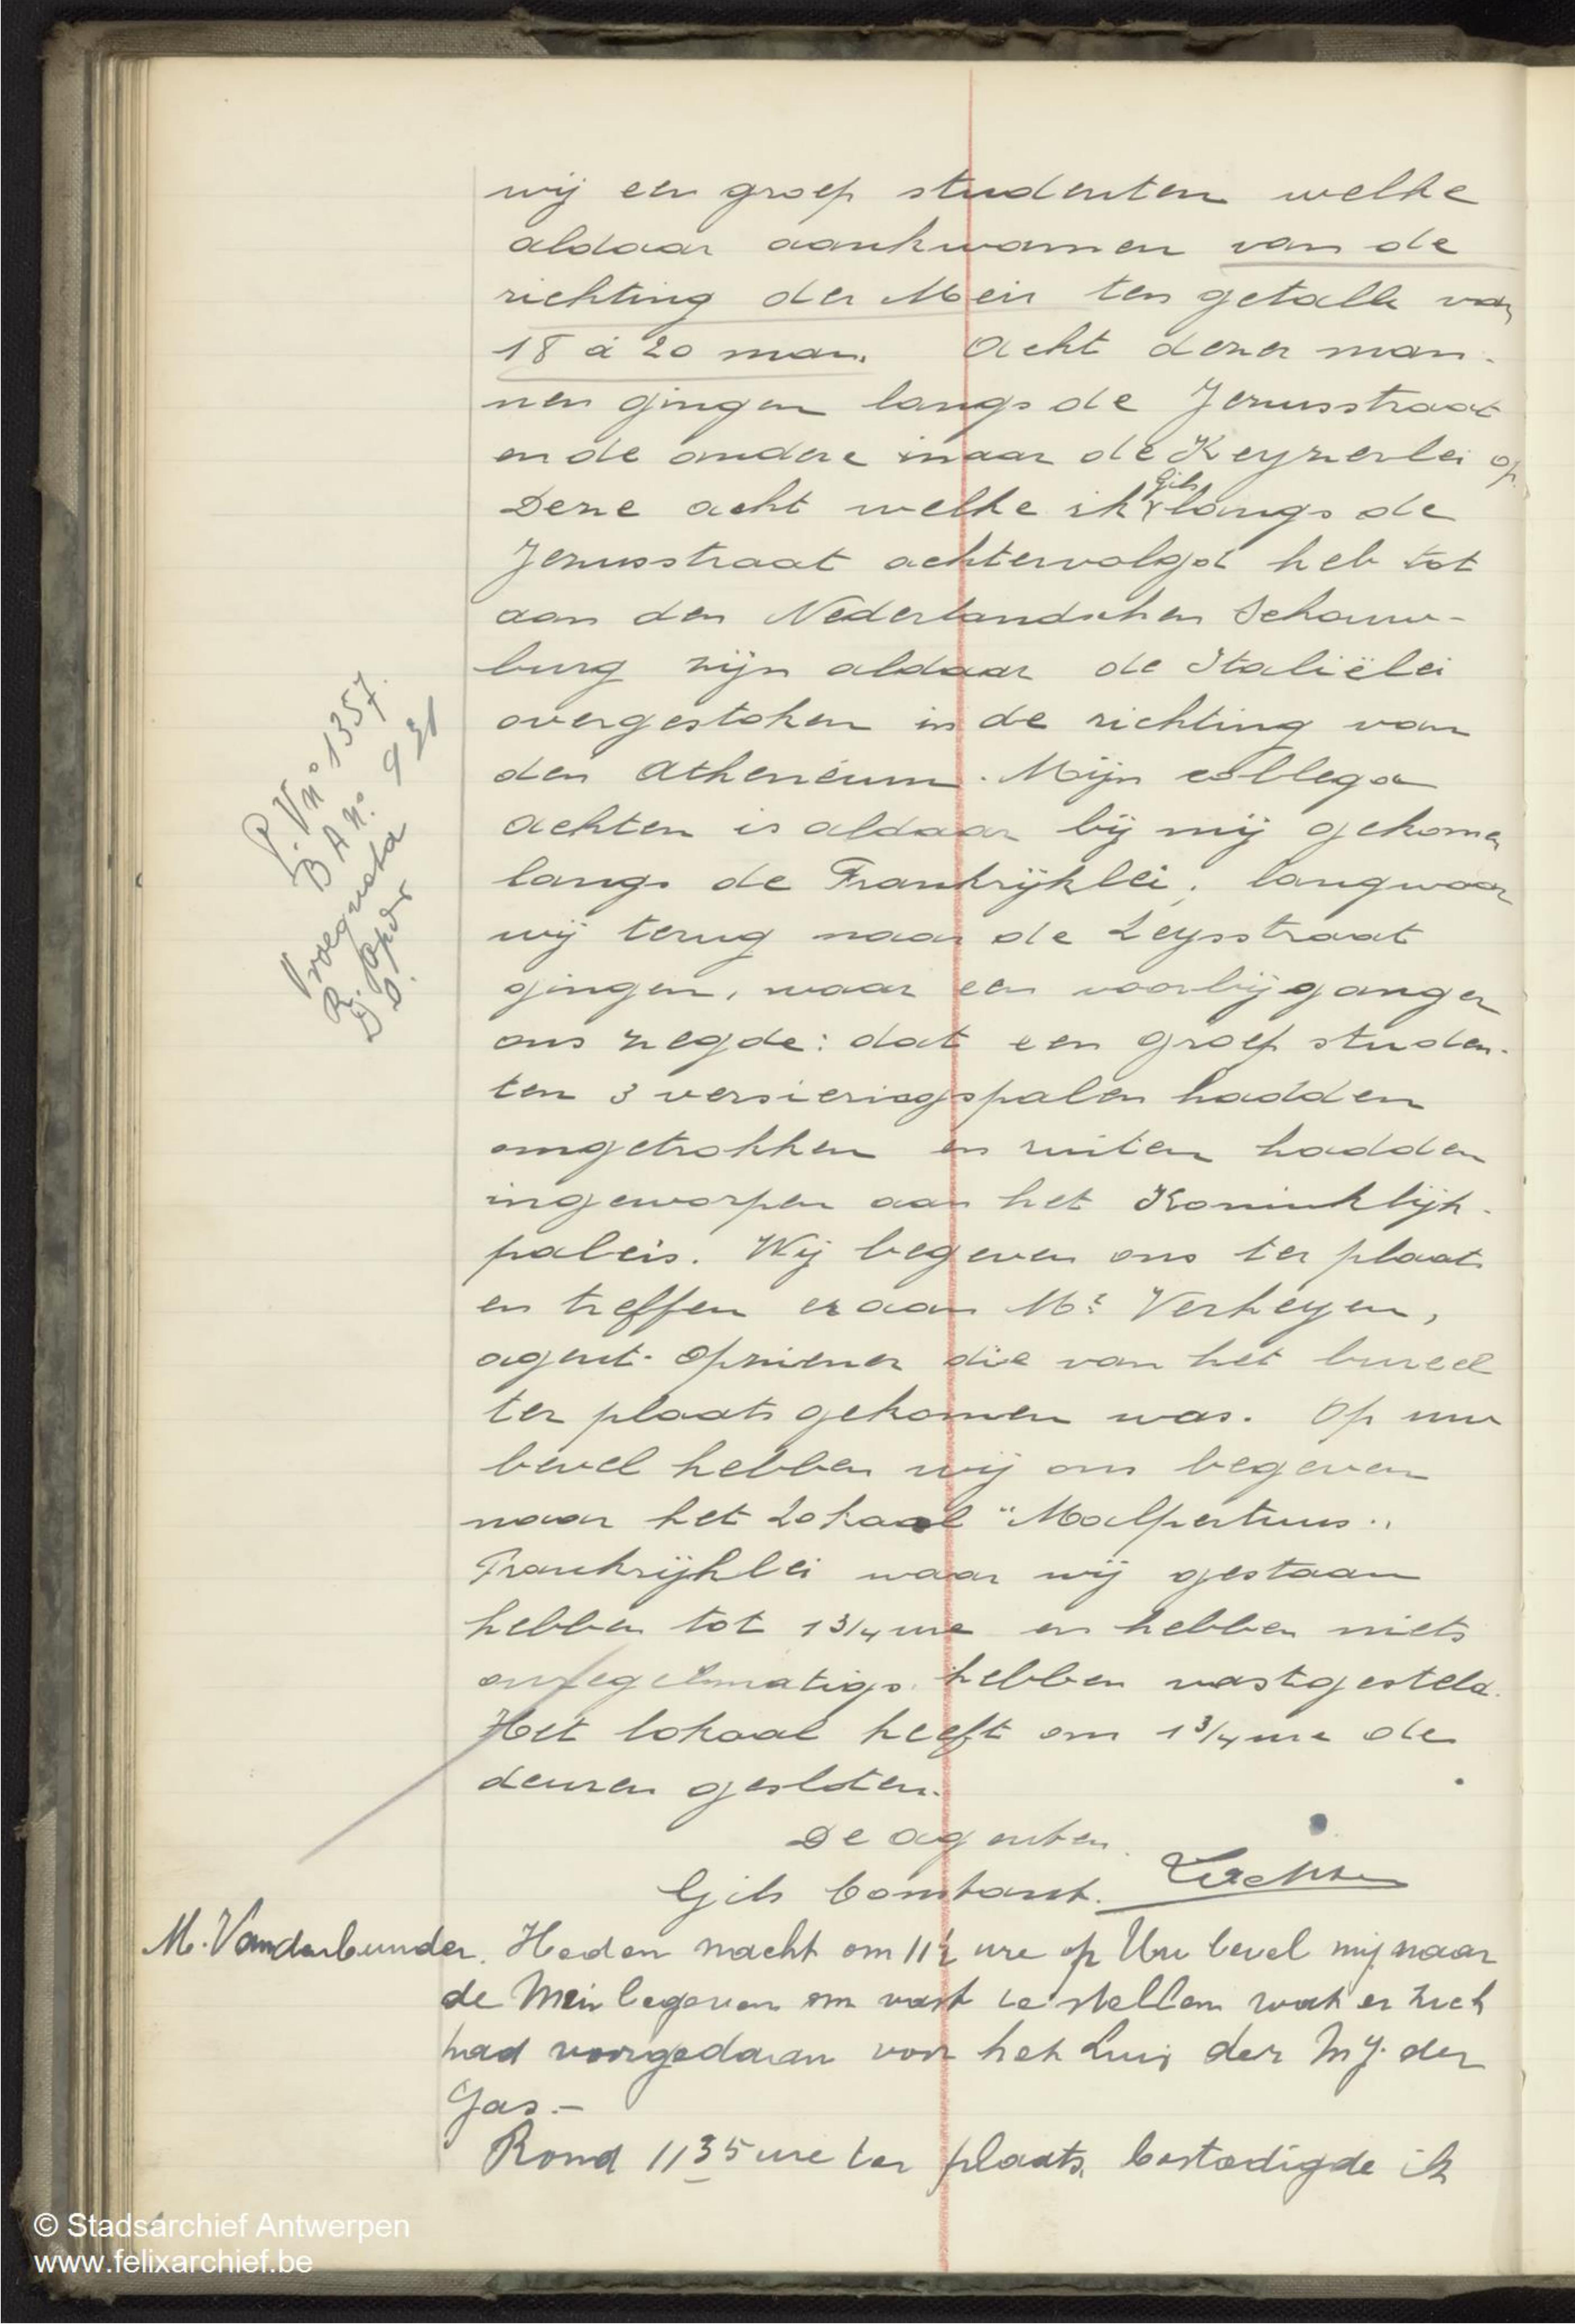 wij een groep studenten welke
aldaar aankwamen van de
richting der Meir ten getalle van
18 à 20 man. Acht dezer man-
nen gingen langs de Jezusstraat
en de andere naar de Keyzerlei op
Gils
Deze acht welke ik langs de
Jezusstraat achtervolgd heb tot
aan den Nederlandschen Schouw-
burg zijn aldaar de Italiëlei
overgestoken in de richting van
den Atheneum. Mijn collega
Achten is aldaar bij mij gekomen
langs de Frankrijklei, langwaar
wij terug naar de Leysstraat
gingen, waar een voorbijganger
ons zegde: dat een groep studen-
ten 3 versieringspalen hadden
omgetrokken en ruiten hadden
ingeworpen aan het Koninklijk-
paleis. Wij begeven ons ter plaats
en treffen er aan Mr Verheyen,
agent-opziener die van het bureel
ter plaats gekomen was. Op uw
bevel hebben wij ons begeven
naar het Lokaal "Malpertuus"
Frankrijklei waar wij gestaan
hebben tot 1 3/4 ure en hebben niets
onregelmatigs hebben vastgesteld.
Het lokaal heeft om 1 3/4 ure de
deuren gesloten.
De agenten.
Gils Constant.
P.V. n° 1357.
B A N°
Vroegnota
M. Vanderbunder. Heden nacht om 11 1/2 ure op Uw bevel mij naar
de Meir begeven om vast te stellen wat er zich
had voorgedaan voor het huis der Mij. der
Gas.-
Rond 11 35 ure ter plaats, bestadigde ik
© Stadsarchief Antwerpen
www.felixarchief.be